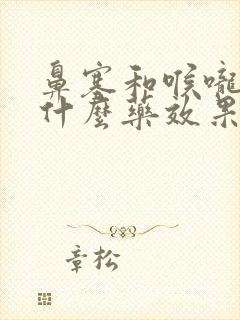 鼻塞和喉嚨
什麼藥效果
章松